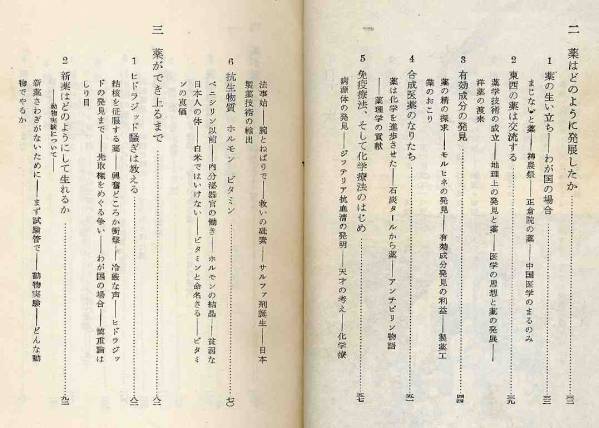 二 薬はどのように発展したか……三二
1 薬の生い立ち――わが国の場合……三二
まじないと薬――神農祭――正倉院の薬――中国医学のまるのみ
2 東西の薬は交流する……三九
薬学技術の成立――地理上の発見と薬――医学の思想と薬の発展――
洋薬の渡来
3 有効成分の発見……四四
薬の精の探求――モルヒネの発見――有効成分発見の利益――製薬工
業のおこり
4 合成医薬のなりたち……五一
薬は化学を進歩させた――石炭タールから薬――アンチピリン物語
――薬理学の貢献
5 免疫療法、そして化学療法のはじめ……五七
病原体の発見――ジフテリア抗血清の発明――天才の考え――化学療
法事始――腕とねばりで――救いの砒素――サルファ剤誕生――日本
製薬技術の輸出
6 抗生物質 ホルモン ビタミン……七〇
ペニシリン以前――内分泌器官の働き――ホルモンの結晶――貧弱な
日本人の体――白米ではいけない――ビタミンと命名さる――ビタミ
ンの真価
三 薬ができ上るまで……八二
1 ヒドラジッド騒ぎは教える……八二
結核を征服する薬――興奮どころか衝撃――冷厳な声――ヒドラジッ
ドの発見まで――先取権をめぐる争い――わが国の場合――慎重論は
しり目
2 新薬はどのようにして生れるか……九二
――動物実験について――
新薬さわぎがないために――まず試験管で――動物実験――どんな動
物でやるか